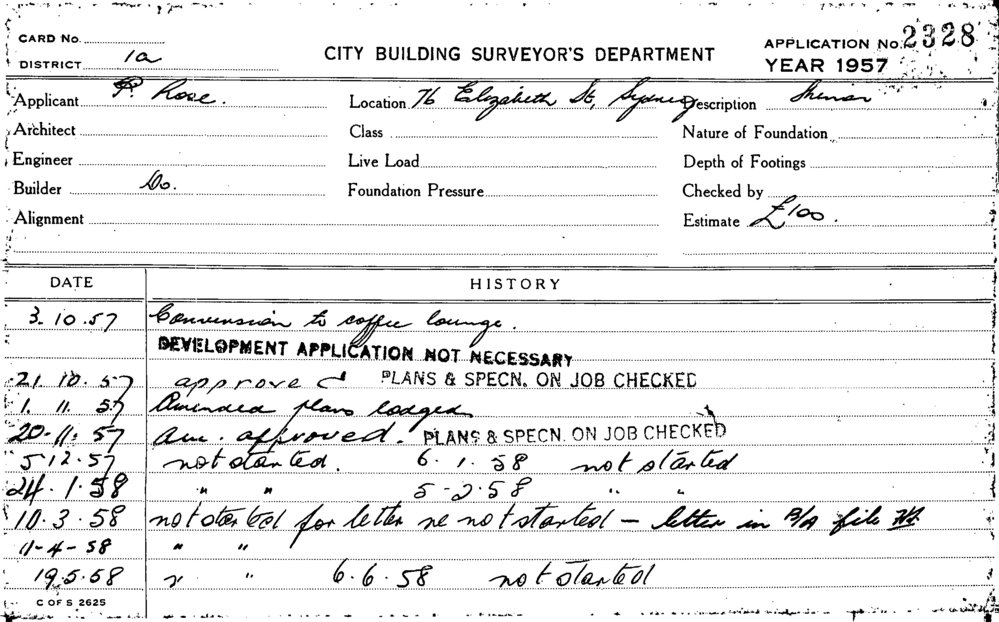 CARD No.
DISTRICT 1a
CITY BUILDING SURVEYOR'S DEPARTMENT
APPLICATION No. 2328
YEAR 1957
Applicant P. Rose. Location 76 Elizabeth St, Sydney Description
Architect Class Nature of Foundation
Engineer Live Load Depth of Footings
Builder Do. Foundation Pressure Checked by
Alignment Estimate £100.
DATE HISTORY
3.10.57 Conversion to coffee lounge.
DEVELOPMENT APPLICATION NOT NECESSARY
21.10.57 approved PLANS & SPECN. ON JOB CHECKED
1.11.57 Amended plans lodged
20-11-57 am. approved. PLANS & SPECN. ON JOB CHECKED
5.12.57 not started. 6.1.58 not started
24.1.58 " " 5-2-58 " "
10.3.58 not started for letter re not started - letter in B/A file
11-4-58 " "
19.5.58 " " 6.6.58 not started
C OF S 2625